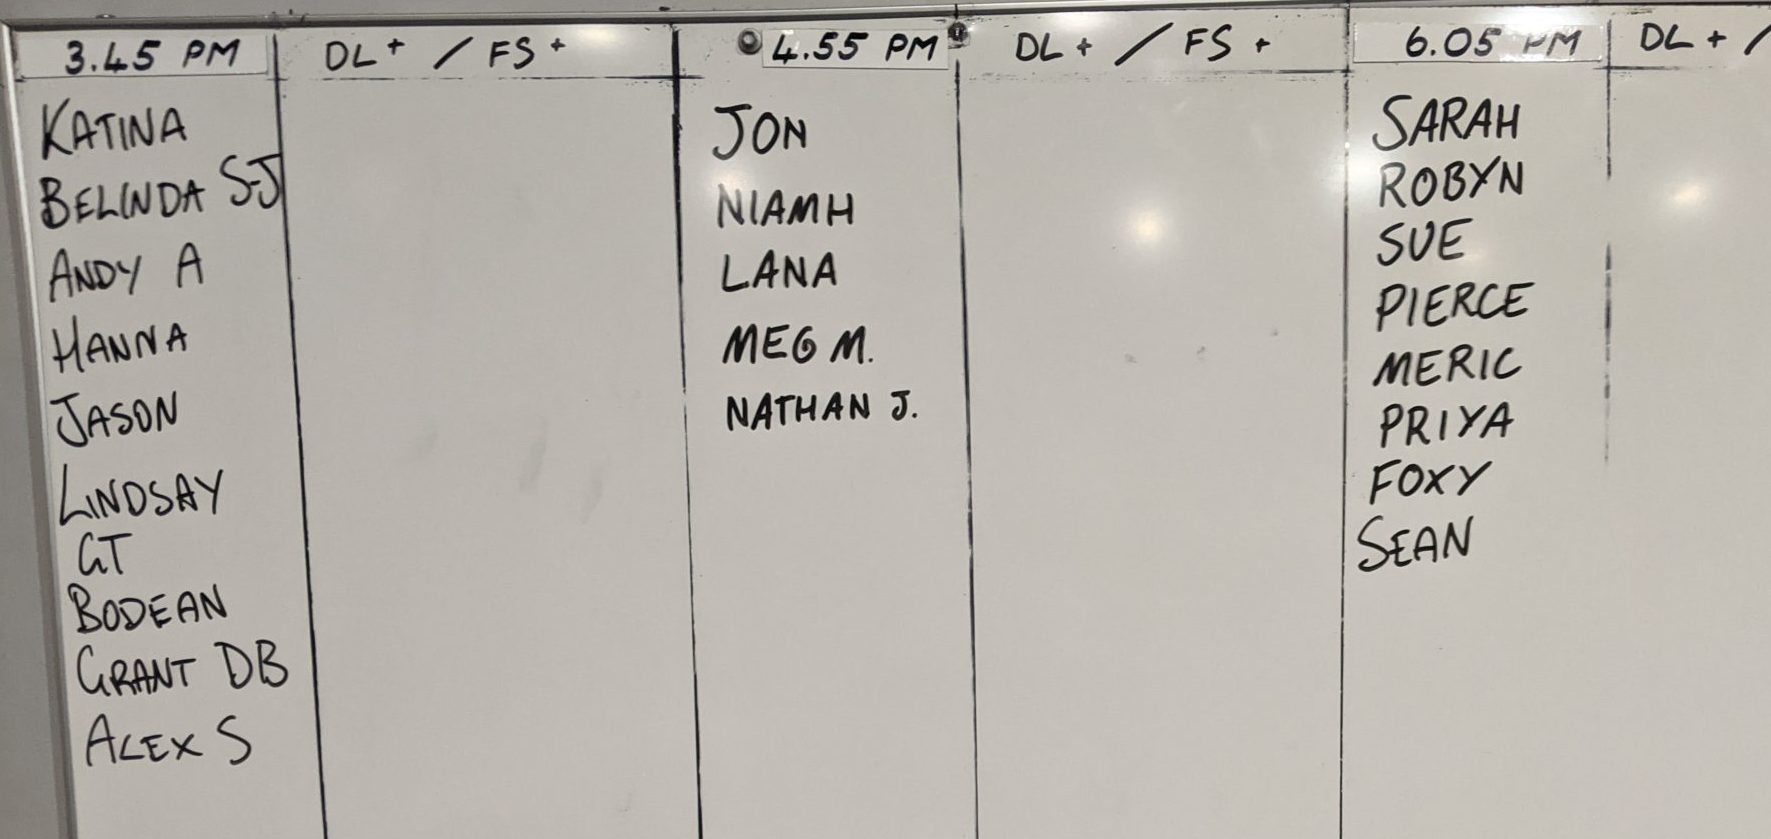 3.45 PM
DL+ / FS+
4.55 PM
DL+ / FS+
6.05 PM
DL+ /
KATINA
BELINDA SJ
ANDY A
HANNA
JASON
LINDSAY
GT
BODEAN
GRANT DB
ALEX S
JON
NIAMH
LANA
MEG M.
NATHAN J.
SARAH
ROBYN
SUE
PIERCE
MERIC
PRIYA
FOXY
SEAN